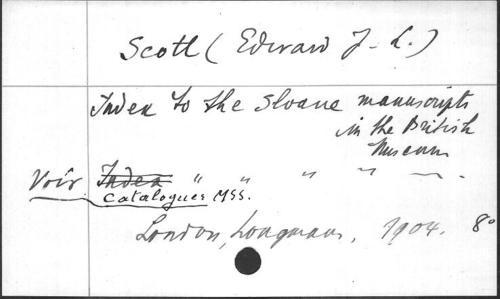 Scott (Edward J. L.)
Index to the Sloane manuscripts
in the British
Museum
Voir Index " " " " "
Catalogues MSS.
London, Longmans, 1904. 8°